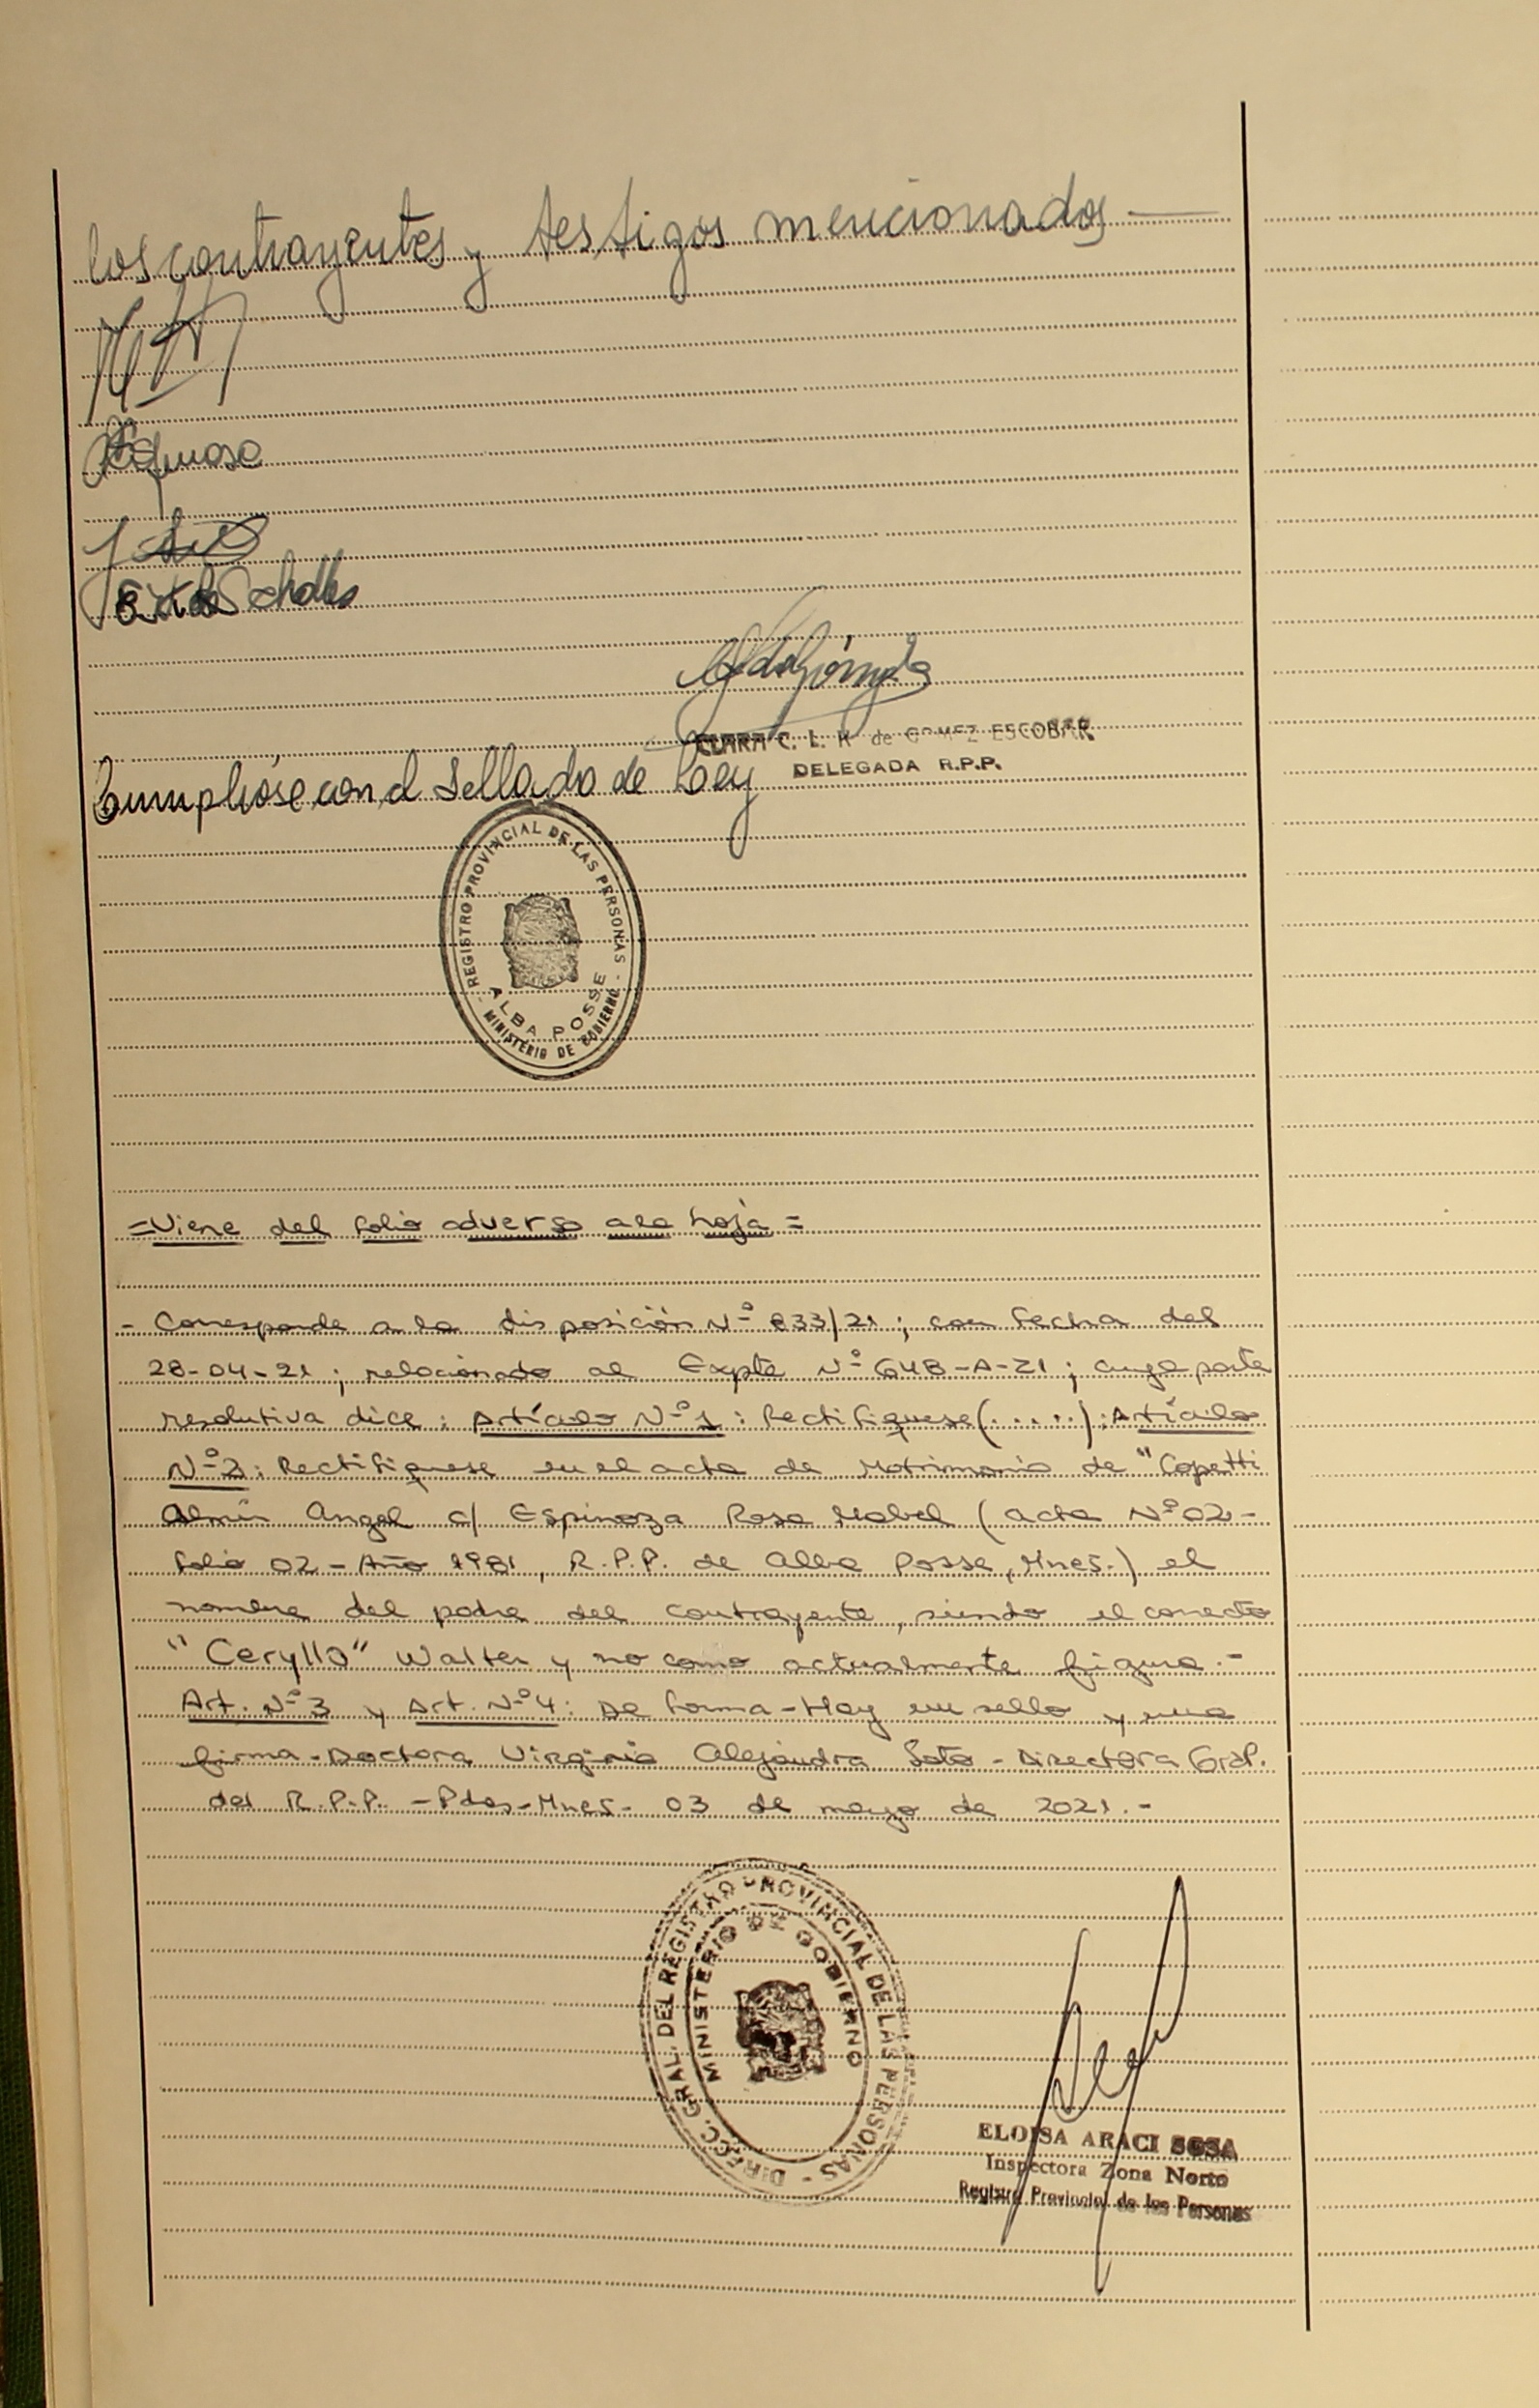 los contrayentes y testigos mencionados —
E. K. de Scholles
CLARA C. L. K de GOMEZ ESCOBAR
DELEGADA R.P.P.
Cumplióse con el Sellado de Ley
REGISTRO PROVINCIAL DE LAS PERSONAS
ALBA POSSE
MINISTERIO DE GOBIERNO
=Viene del folio adverso a la hoja=
- Corresponde a la disposición Nº 833/21; con fecha del
28-04-21; relacionado al Expte Nº 648-A-21; cuya parte
resolutiva dice: Artículo Nº1: Rectifiquese(.....):Artículo
Nº2: Rectifiquese en el acta de Matrimonio de "Copetti
Almir Angel c/ Espinoza Rosa Mabel (acta Nº 02-
folio 02-Año 1981, R.P.P. de Alba Posse, Mnes.) el
nombre del padre del contrayente, siendo el correcto
"Ceryllo" Walter y no como actualmente figura.-
Art. Nº3 y Art. Nº4: De forma-Hay un sello y una
firma-Doctora Virginia Alejandra Soto-Directora Gral.
del R.P.P. -Pdas-Mnes- 03 de mayo de 2021.-
DIRECC. GRAL. DEL REGISTRO PROVINCIAL DE LAS PERSONAS -
MINISTERIO DE GOBIERNO
ELOISA ARACI SOSA
Inspectora Zona Norte
Registro Provincial de las Personas